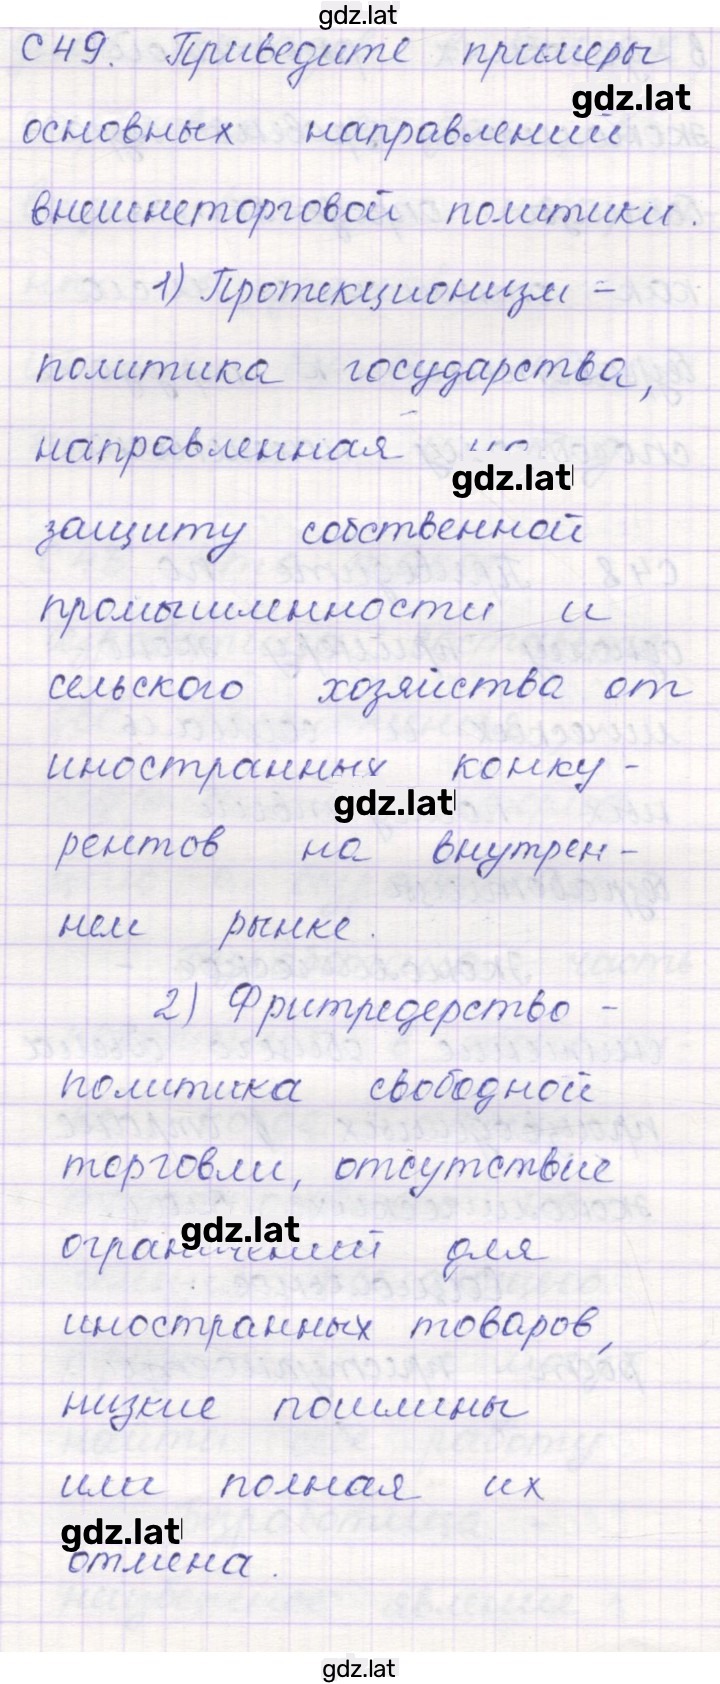 gdz.lat
С49. Приведите примеры
gdz.lat
основных направлений
внешнеторговой политики.
1) Протекционизм -
политика государства,
направленная на
gdz.lat
защиту собственной
промышленности и
сельского хозяйства от
иностранных конку-
gdz.lat
рентов на внутрен-
нем рынке.
2) Фритредерство -
политика свободной
торговли, отсутствие
gdz.lat
ограничений для
иностранных товаров,
низкие пошлины
или полная их
gdz.lat
отмена.
gdz.lat